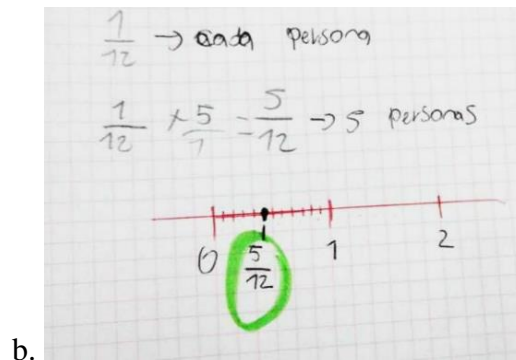 1/12 → cada persona
1/12 × 5/1 = 5/12 → 5 personas
0 5/12 1 2
b.